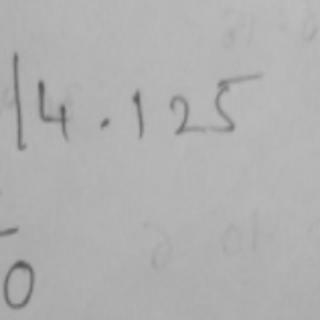 14.125
0